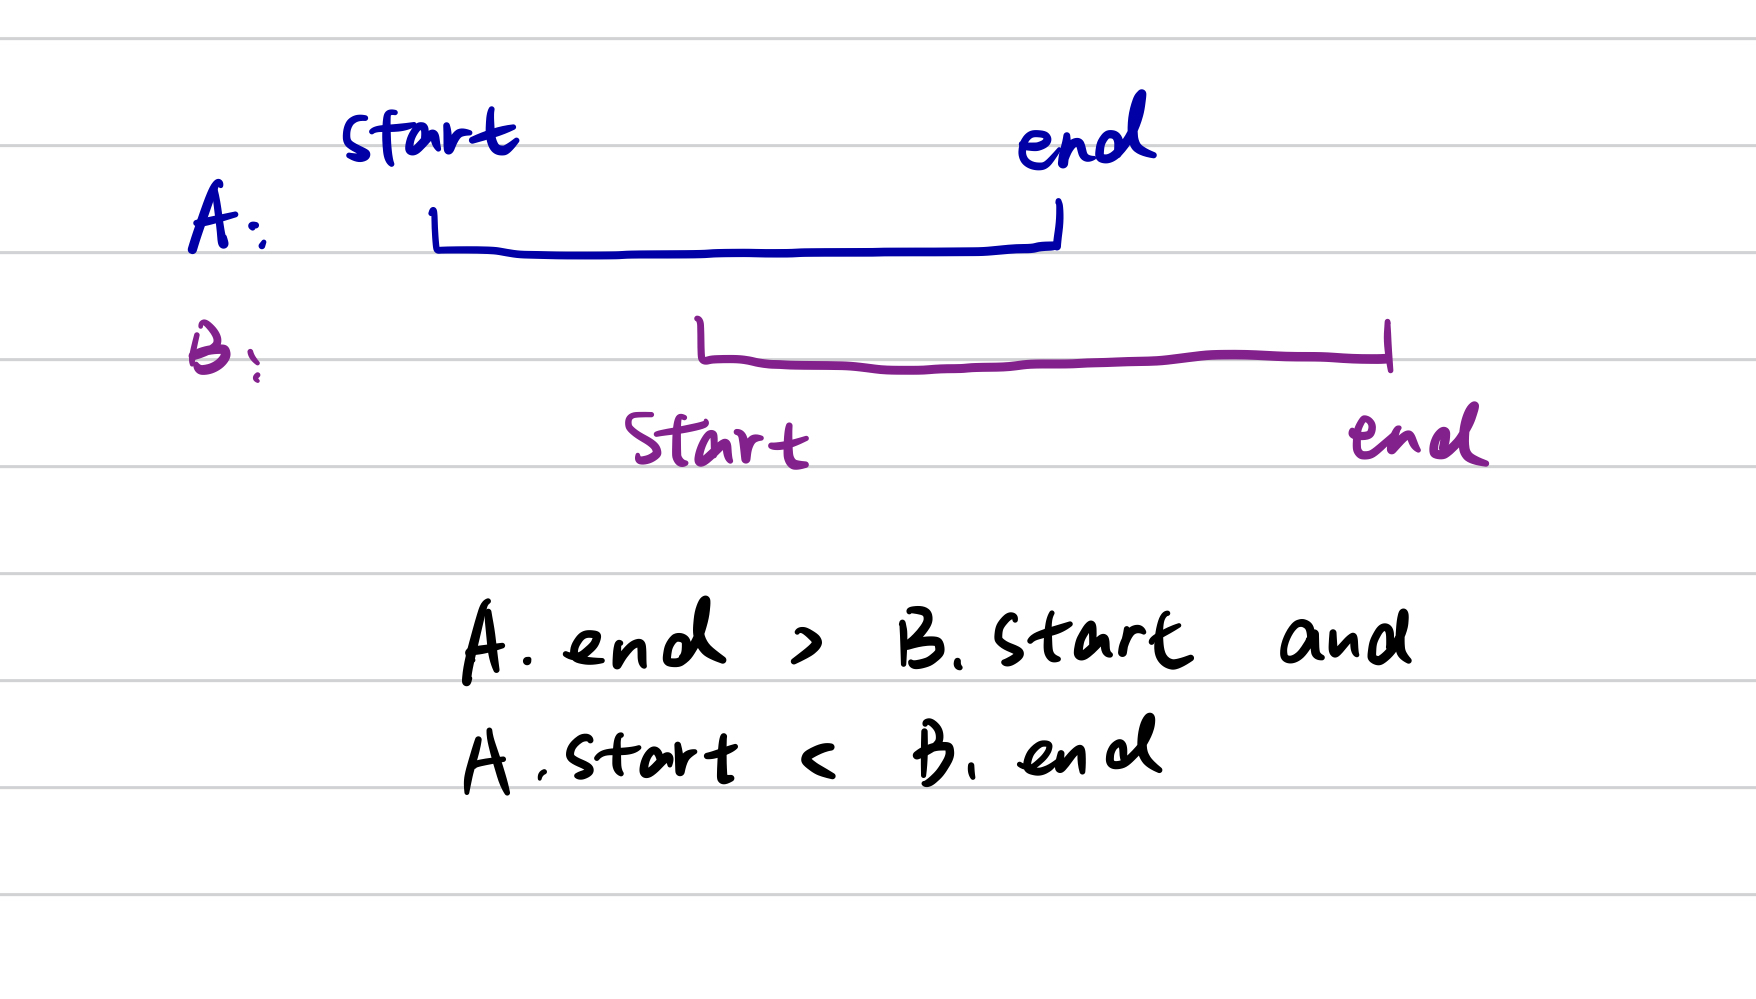 start end
A:
B:
Start end
A. end > B. Start and
A. start < B. end